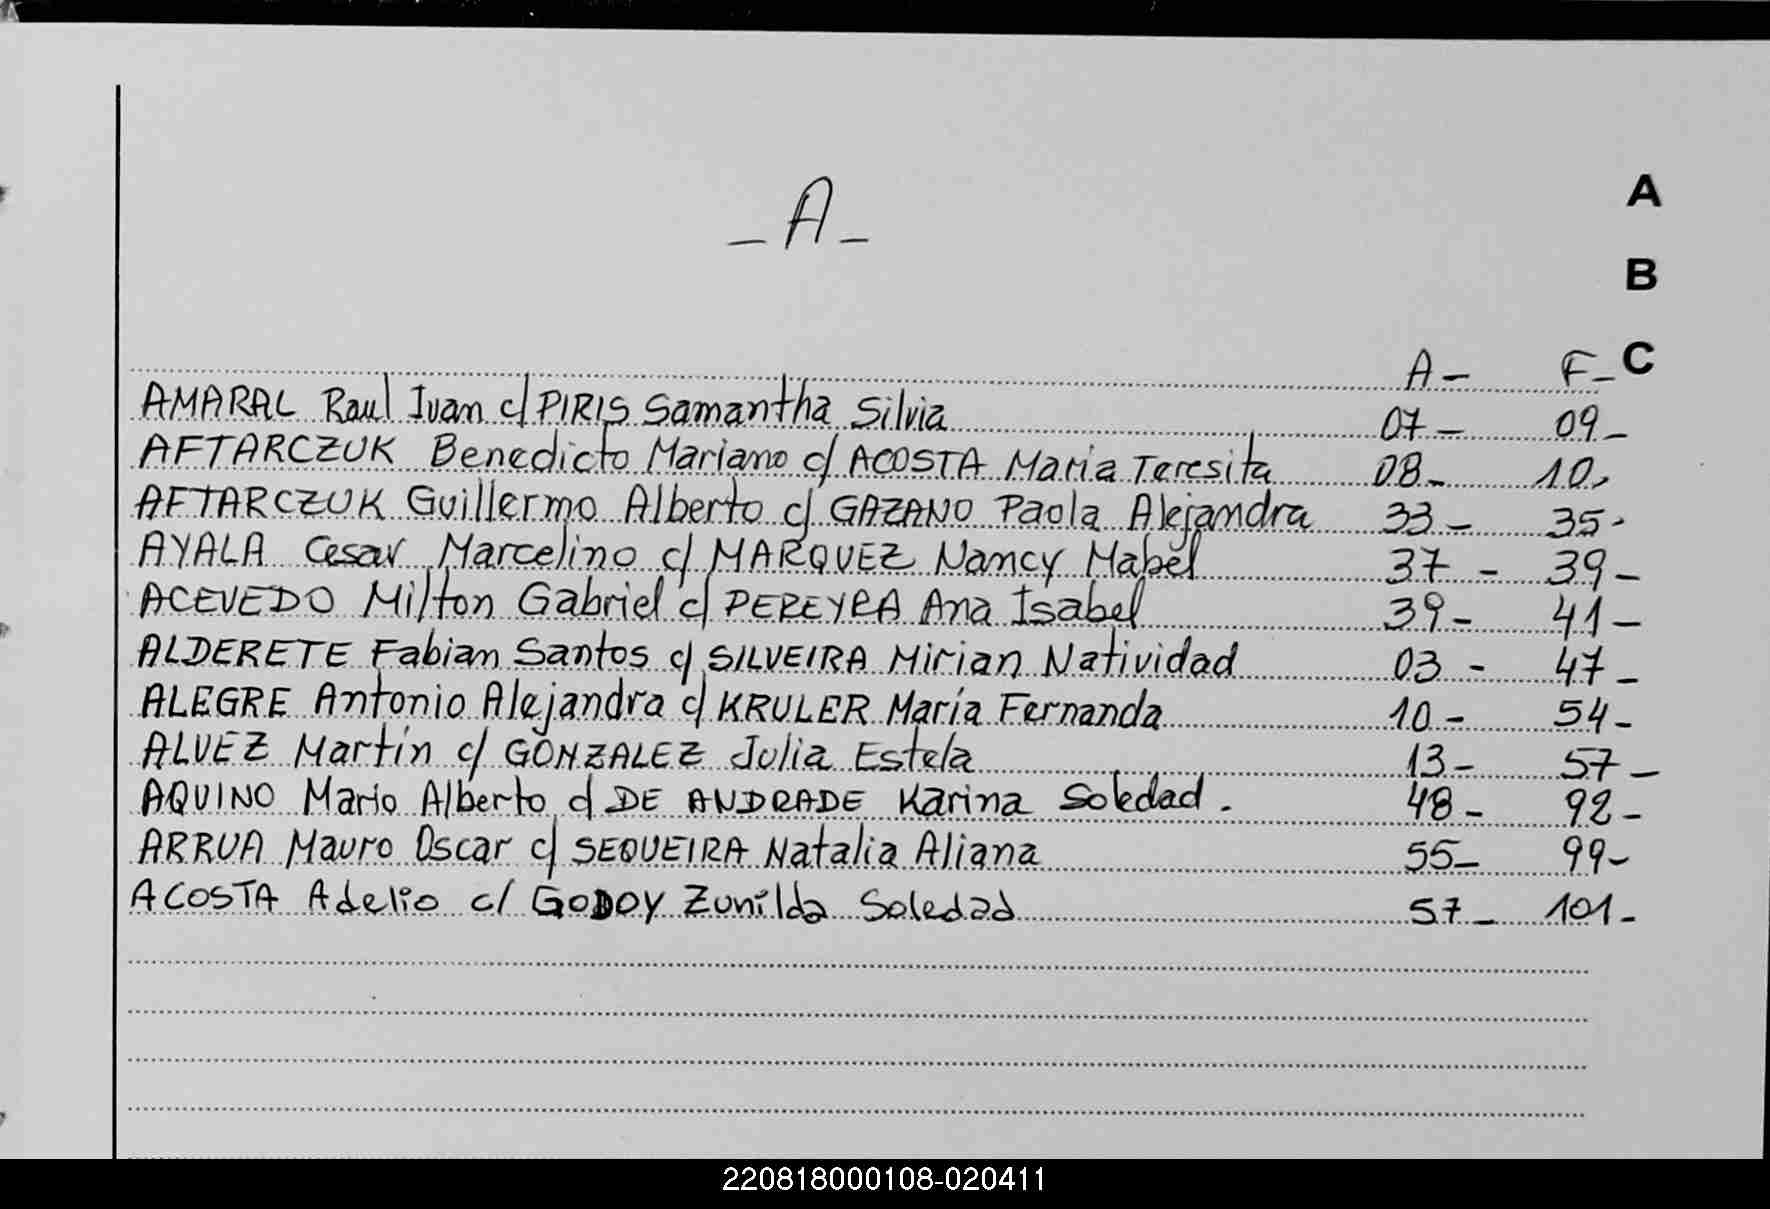 - A -
A
B
C
A - F -
AMARAL Raul Ivan c/ PIRIS Samantha Silvia 07 - 09 -
AFTARCZUK Benedicto Mariano c/ ACOSTA Maria Teresita 08 - 10 -
AFTARCZUK Guillermo Alberto c/ GAZANO Paola Alejandra 33 - 35 -
AYALA Cesar Marcelino c/ MARQUEZ Nancy Mabel 37 - 39 -
ACEVEDO Milton Gabriel c/ PEREYRA Ana Isabel 39 - 41 -
ALDERETE Fabian Santos c/ SILVEIRA Mirian Natividad 03 - 47 -
ALEGRE Antonio Alejandra c/ KRULER María Fernanda 10 - 54 -
ALVEZ Martín c/ GONZALEZ Julia Estela 13 - 57 -
AQUINO Mario Alberto c/ DE ANDRADE Karina Soledad. 48 - 92 -
ARRUA Mauro Oscar c/ SEQUEIRA Natalia Aliana 55 - 99 -
ACOSTA Adelio c/ GODOY Zunilda Soledad 57 - 101 -
220818000108-020411